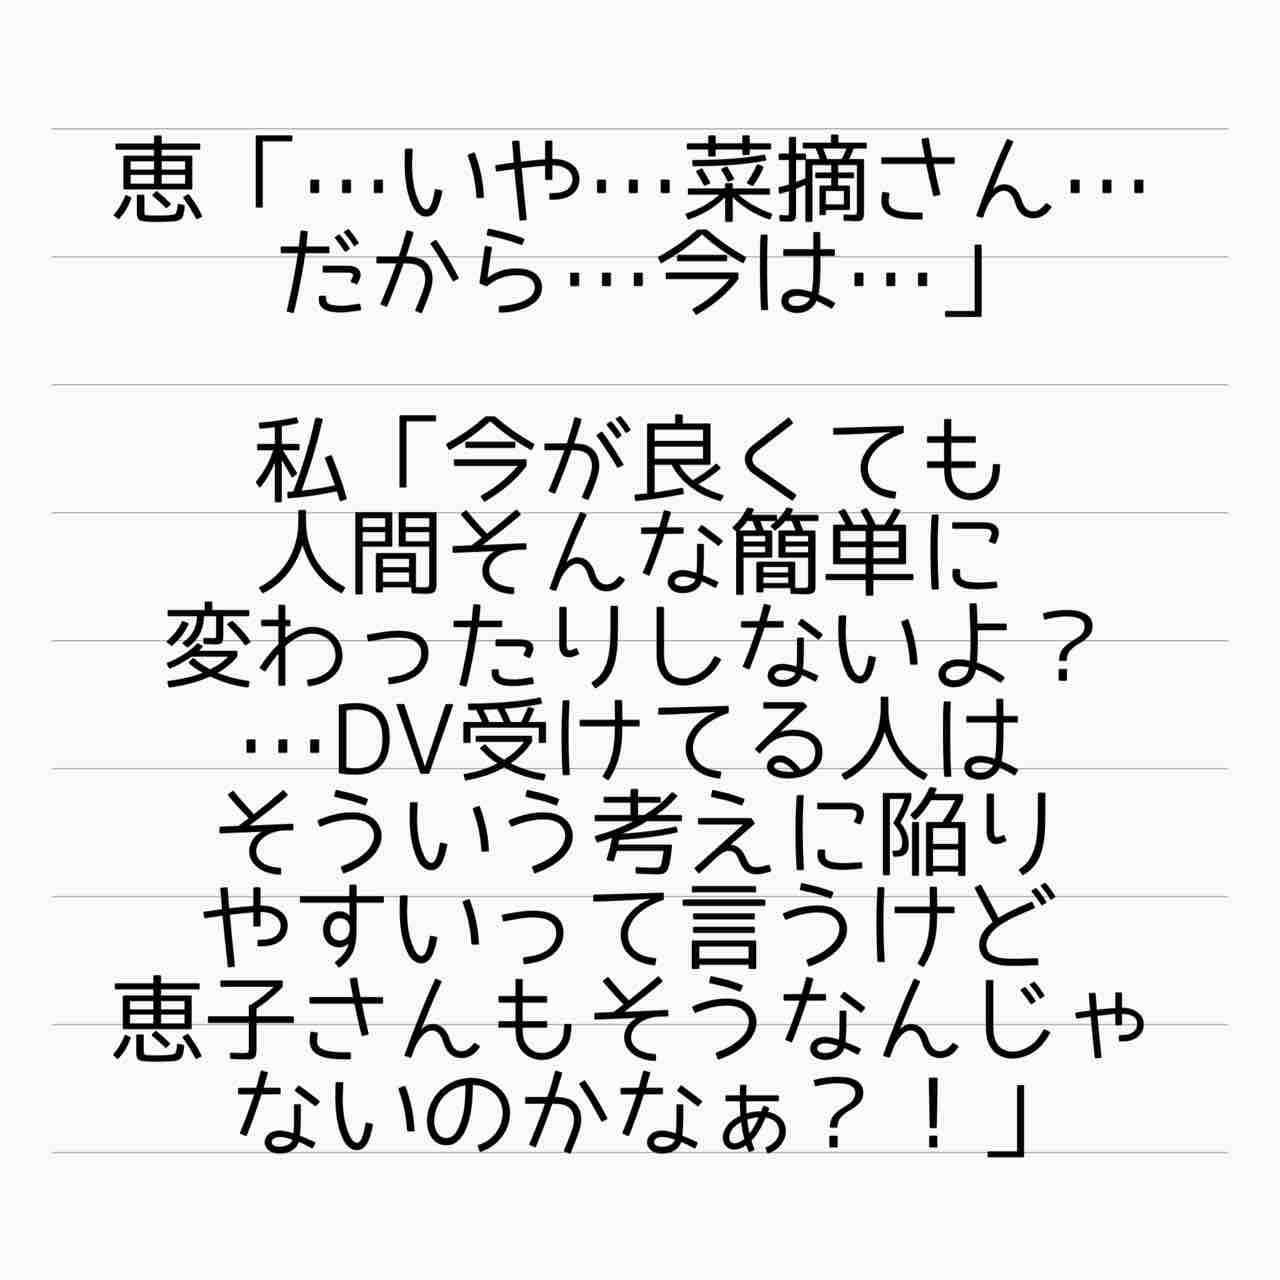 恵「…いや…菜摘さん…
だから…今は…」
私「今が良くても
人間そんな簡単に
変わったりしないよ？
…DV受けてる人は
そういう考えに陥り
やすいって言うけど
恵子さんもそうなんじゃ
ないのかなぁ？！」